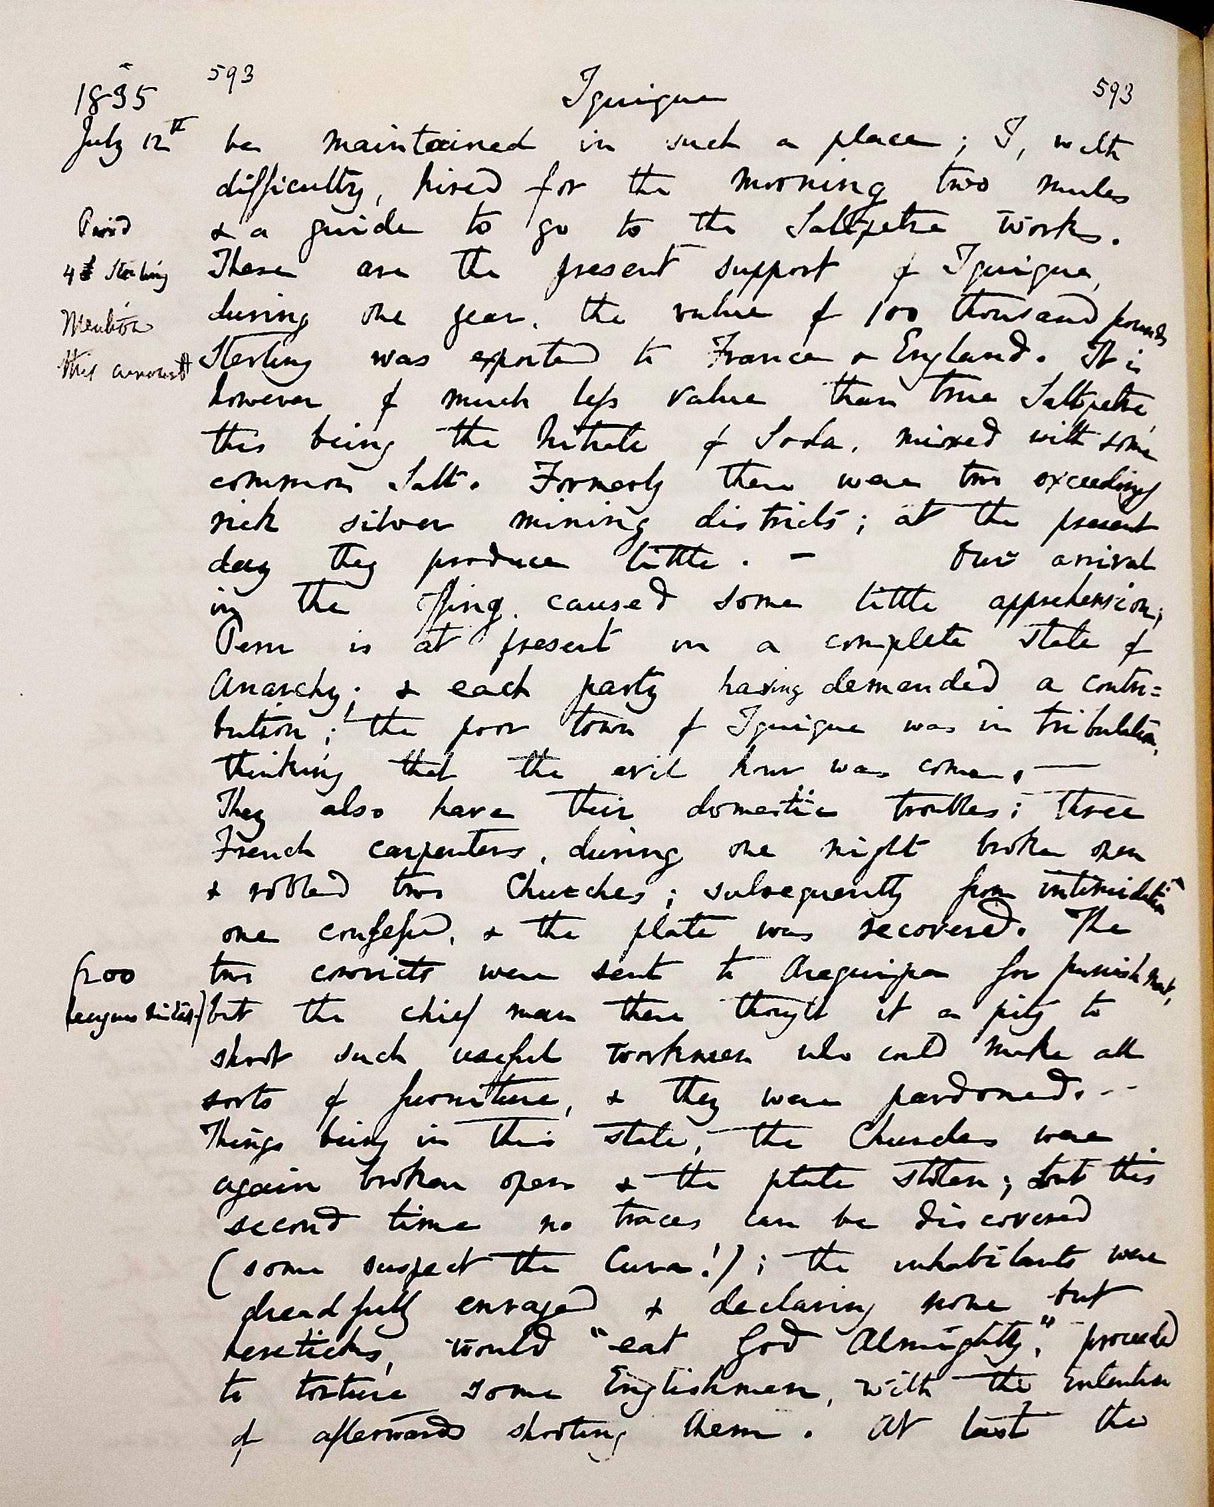 593 Iquique 593
1835
July 12th be maintained in such a place; I, with
difficulty, hired for the morning two mules
Paid & a guide to go to the Saltpetre works.
4£ Sterling These are the present support of Iquique,
Mention during one year, the value of 100 thousand pounds
this amount Sterling was exported to France & England. It is
however of much less value than true Saltpetre,
this being the Nitrate of Soda, mixed with some
common Salt. Formerly there were two exceedingly
rich silver mining districts; at the present
day they produce little. — Our arrival
in the offing, caused some little apprehension;
Peru is at present in a complete state of
Anarchy; & each party having demanded a contri=
bution; the poor town of Iquique was in tribulation,
thinking that the evil hour was come. —
They also have their domestic troubles; three
French carpenters, during one night broke open
& robbed two Churches; subsequently from intimidation
one confessed, & the plate was recovered. The
two convicts were sent to Arequipa for punishment,
but the chief man there thought it a pity to
shoot such useful workmen who could make all
sorts of furniture, & they were pardoned. —
Things being in this state, the Churches were
again broken open & the plate stolen; but this
second time no traces can be discovered
(some suspect the Cura!); the inhabitants were
dreadfully enraged & declaring none but
hereticks, would "eat God Almighty", proceeded
to torture some Englishmen, with the intention
of afterwards shooting them. At last the